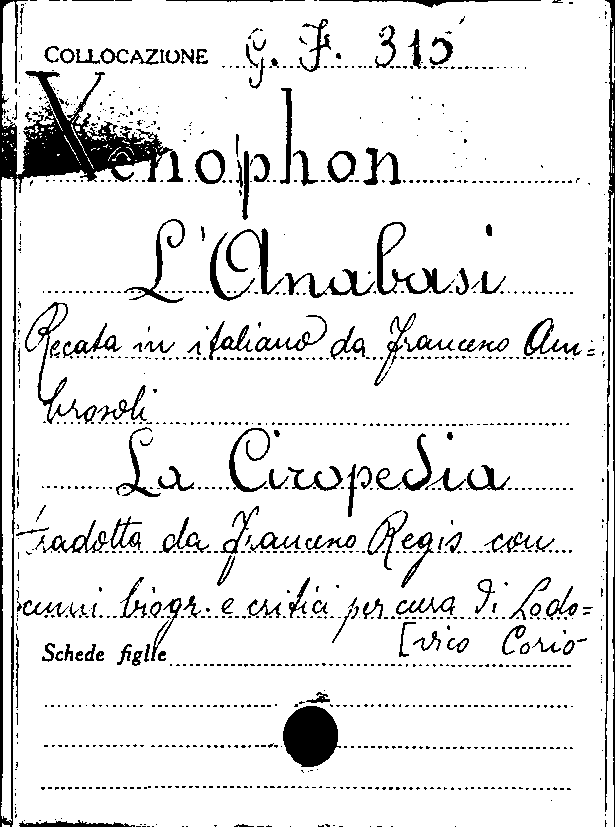 COLLOCAZIONE G. F. 315
Xenophon
L'Anabasi
Recata in italiano da Francesco Am=
brosoli
La Ciropedia
tradotta da Francesco Regis con
cenni biogr. e critici per cura di Lodo=
[vico Corio
Schede figlie